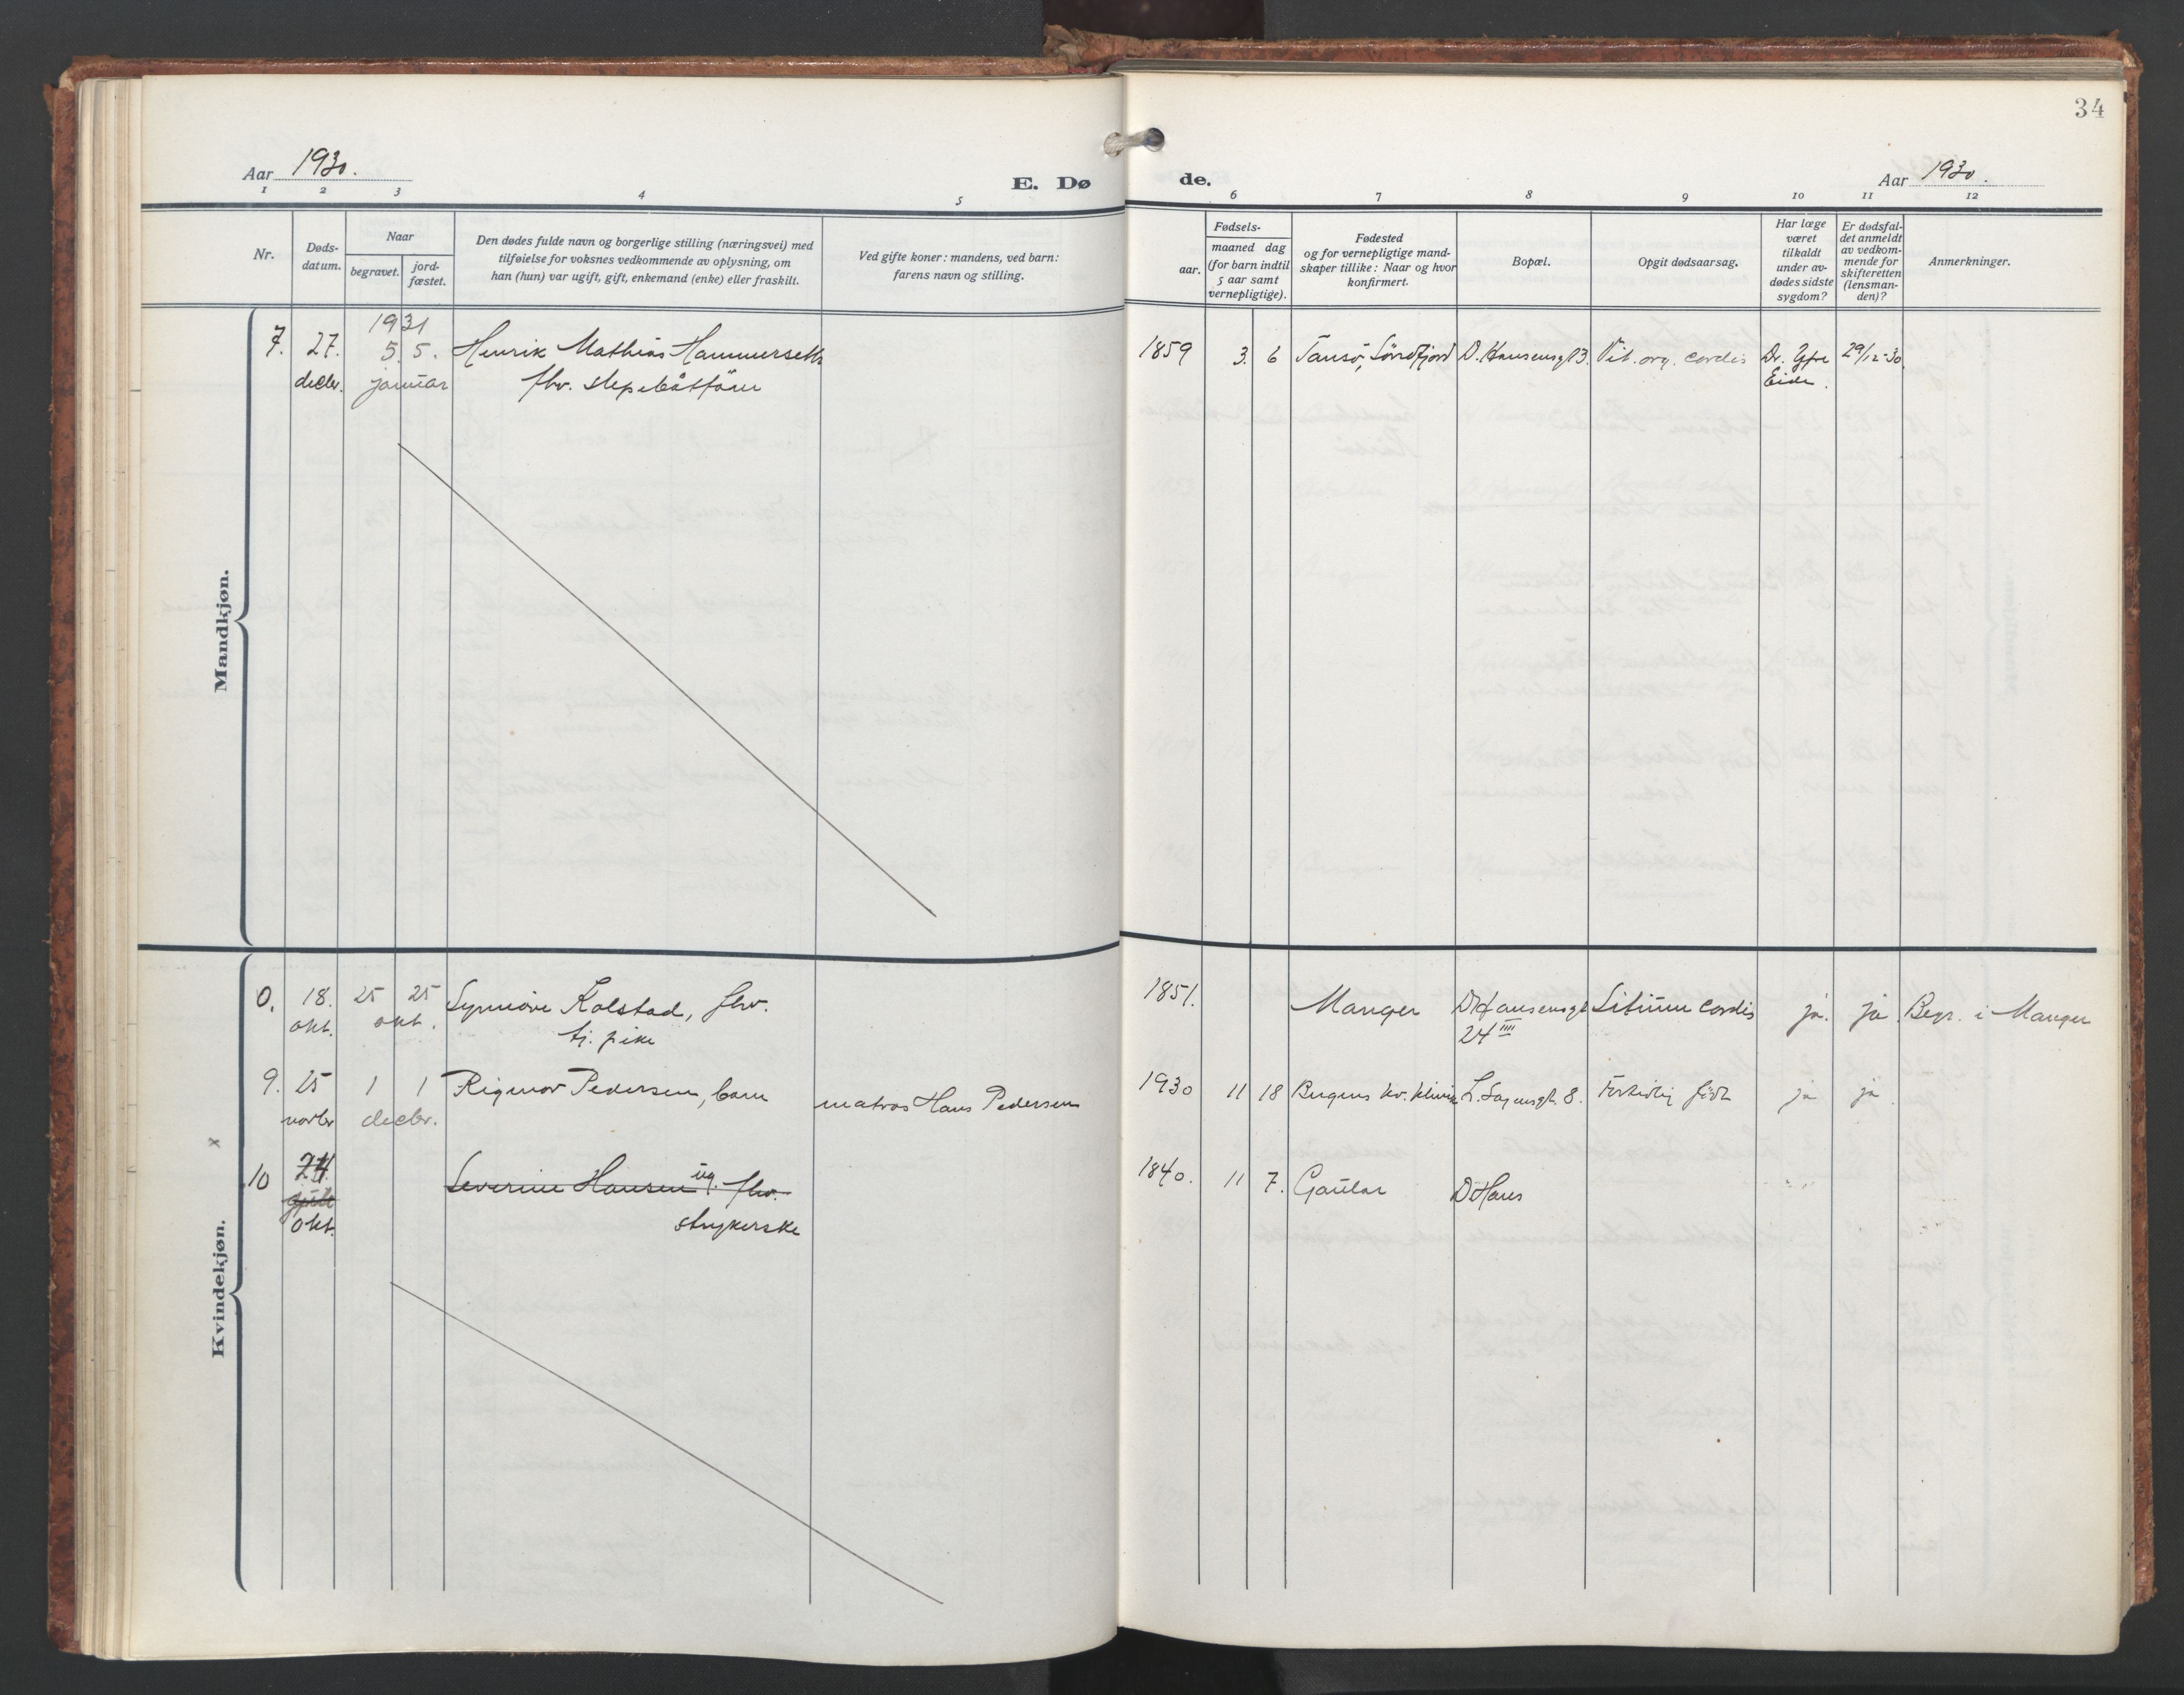 34
Aar 1930.
E. Dø
de.
Aar 1930.
1 2 3 4 5 6 7 8 9 10 11 12
Nr.
Døds-
datum.
Naar
begravet.
jord-
fæstet.
Den dødes fulde navn og borgerlige stilling (næringsvei) med
tilføielse for voksnes vedkommende av oplysning, om
han (hun) var ugift, gift, enkemand (enke) eller fraskilt.
Ved gifte koner: mandens, ved barn:
farens navn og stilling.
Fødsels-
aar.
maaned dag
(for barn indtil
5 aar samt
vernepligtige).
Fødested
og for vernepligtige mand-
skaper tillike: Naar og hvor
konfirmert.
Bopæl.
Opgit dødsaarsag.
Har læge
været
tilkaldt
under av-
dødes sidste
sygdom?
Er dødsfal-
det anmeldt
av vedkom-
mende for
skifteretten
(lensman-
den)?
Anmerkninger.
Mandkjøn.
1931
7. 27. 5. 5. Henrik Mathias Hammerseth 1859 3. 6 Sørdfjord D. Hansensgt 3. Vit. org. cordis Dr. 29/12-30.
decbr. januar fhv. Eide.
Kvindekjøn.
0. 18. 25 25 Synnöve Kolstad, fhv. 1851. Manger D Hansensgt Litium cordis ja. ja Begr. i Manger
okt. okt. tj. pike 24 IIII
9. 25 1 1 Rigmor Pedersen, barn matros Hans Pedersen 1930 11 18 Bergens kv. klinik L. Sagensgt. 8. Fortidlig född ja ja.
novbr decbr.
x
10 24 Severine Hansen ug. fhv. 1840. 11 7. Gaular D Hans
okt. strykerske